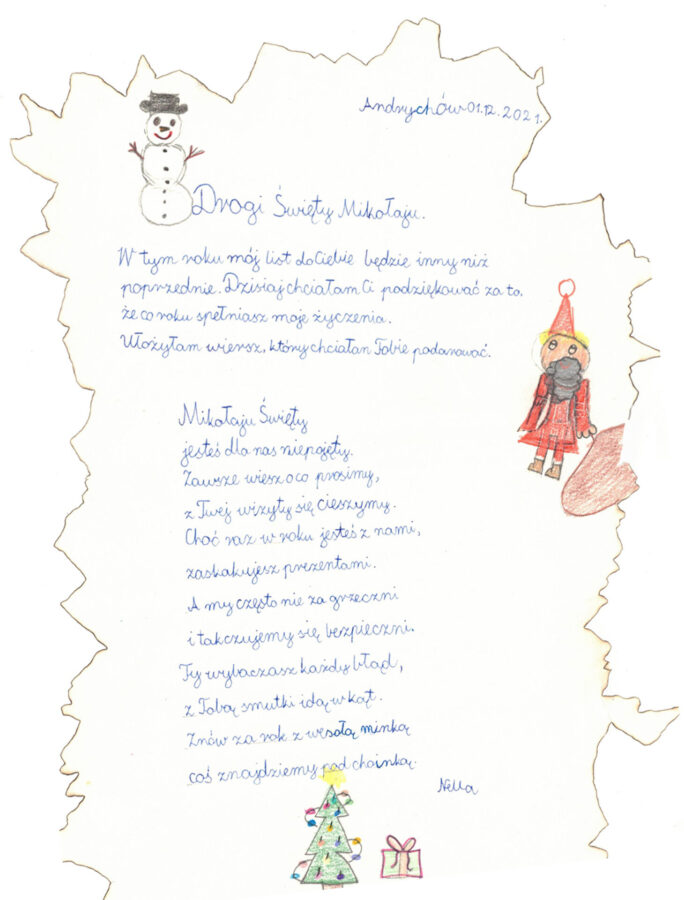 Andrychów 01.12.2021.
Drogi Święty Mikołaju.
W tym roku mój list do Ciebie będzie inny niż
poprzednie. Dzisiaj chciałam Ci podziękować za to,
że co roku spełniasz moje życzenia.
Ułożyłam wiersz, który chciałan Tobie podarować.
Mikołaju Święty
jesteś dla nas niepojęty.
Zawsze wiesz o co prosimy,
z Twej wizyty się cieszymy.
Choć raz w roku jesteś z nami,
zaskakujesz prezentami.
A my często nie za grzeczni
i tak czujemy się bezpieczni.
Ty wybaczasz każdy błąd,
z Tobą smutki idą w kąt.
Znów za rok z wesołą minką
coś znajdziemy pod choinką.
Nella